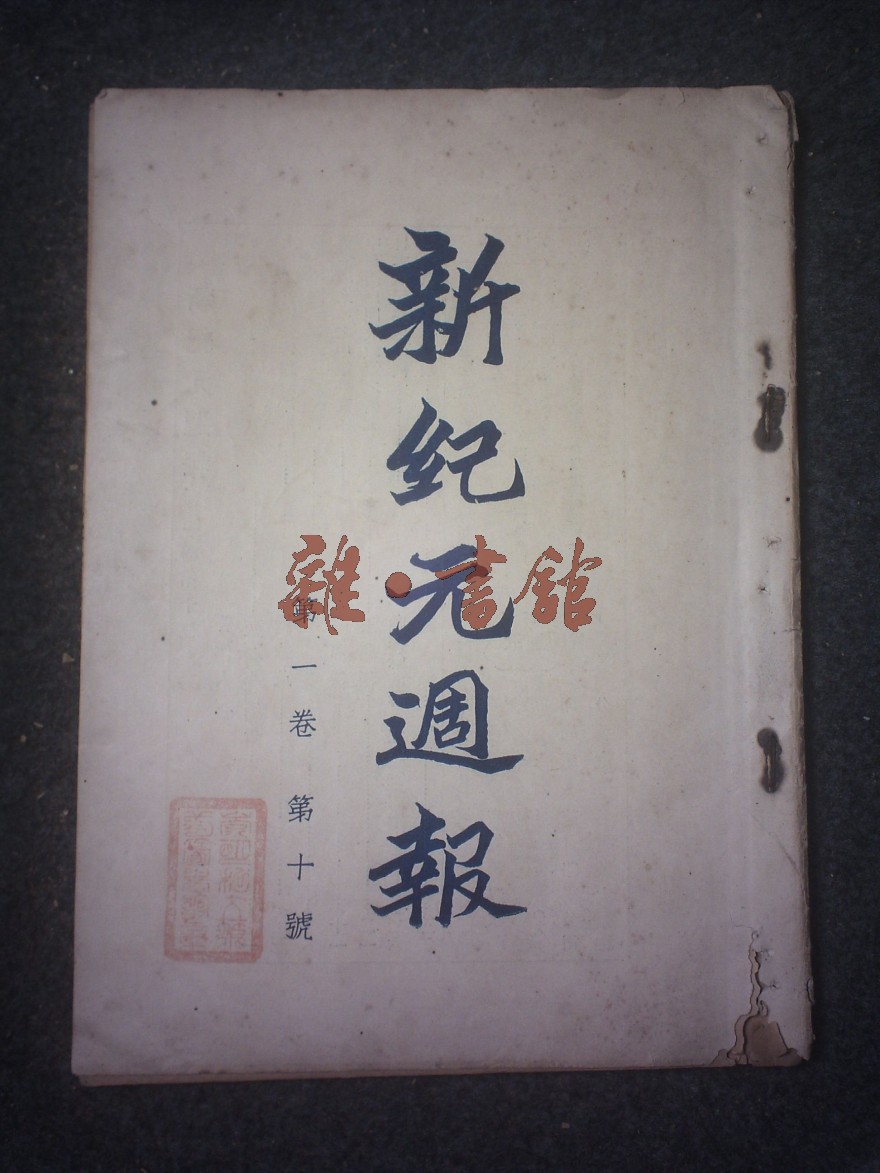 新紀元週報
第一卷 第十號
雜·書館